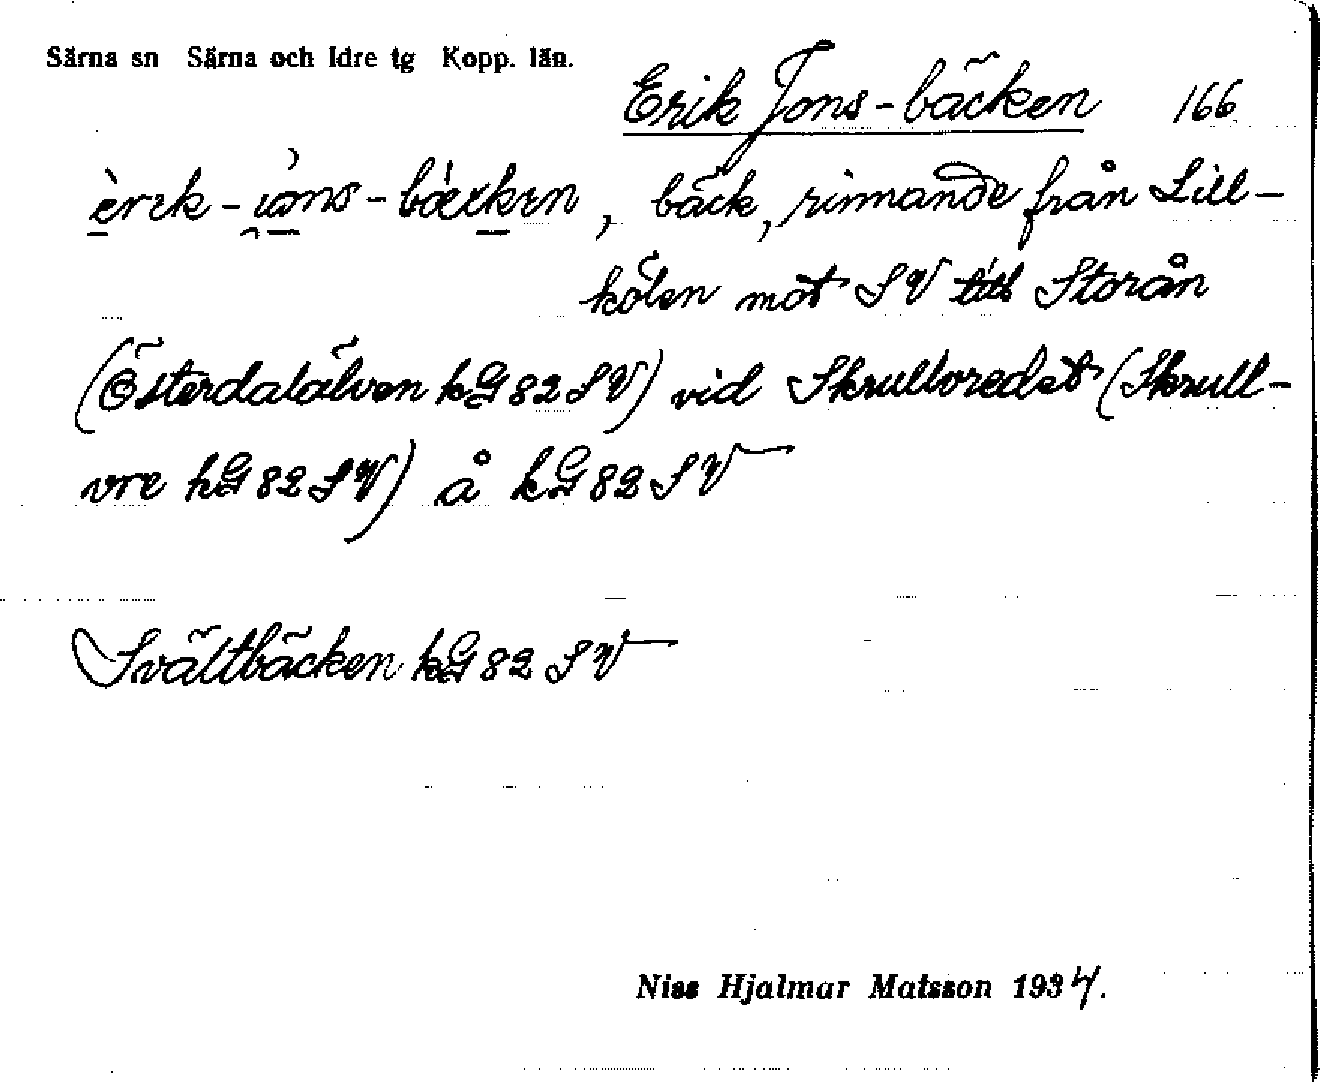 Särna sn Särna och Idre tg Kopp. län.
Erik Jons-bäcken 166
, bäck, rinnande från Lill-
kölen mot SV till Storån
(Österdalälven kG 82 SV) vid Skrullvredet (Skrull-
vre kG 82 SV) å kG 82 SV
Svältbäcken kG 82 SV
Niss Hjalmar Matsson 1934.